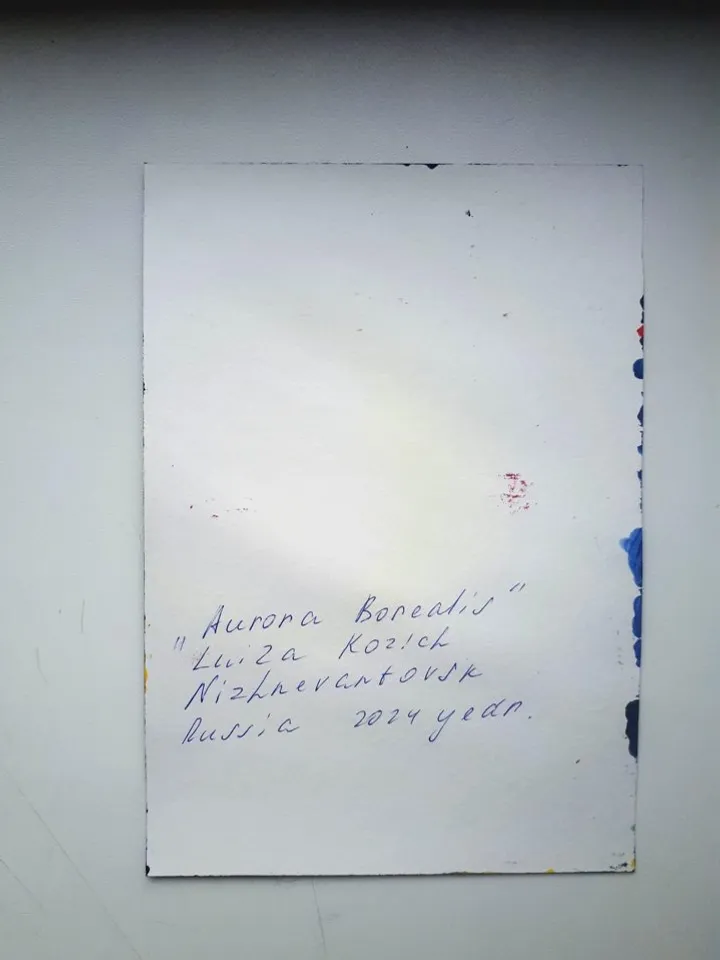 "Aurora Borealis"
Luiza Kozich
Nizhnevartovsk
Russia 2024 year.